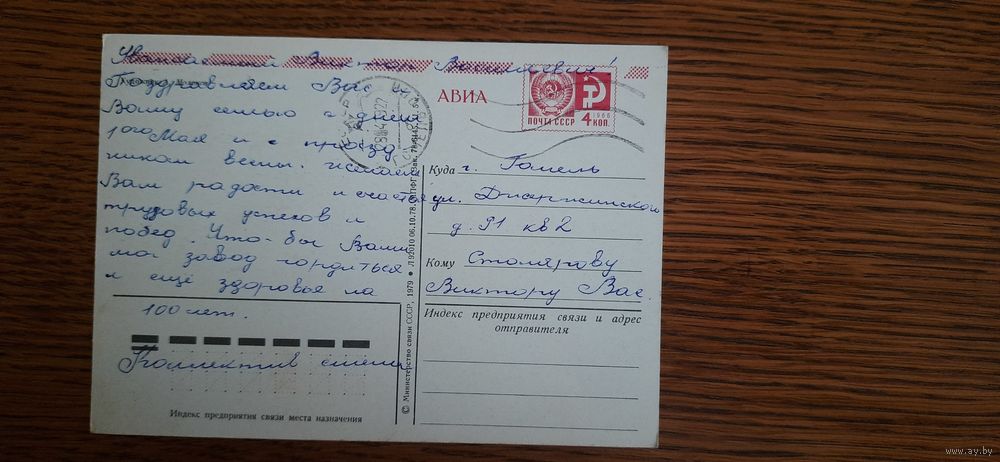 Уважаемый Виктор Васильевич!
Поздравляем Вас и
Вашу семью с днём
1ого Мая и с празд
ником весны. Желаем
Вам радости и счастья
трудовых успехов и
побед. Что-бы Вами
мог завод гордиться
и ещё здоровья на
100 лет.
Коллектив смены
Индекс предприятия связи места назначения
© Министерство связи СССР, 1979 ● Л 92010 06.10.78.
АВИА
ПОЧТА СССР
1966
4 коп.
Куда г. Гомель
ул. Дзержинского
д. 91 кв 2
Кому Столярову
Виктору Вас.
Индекс предприятия связи и адрес
отправителя
www.ay.by